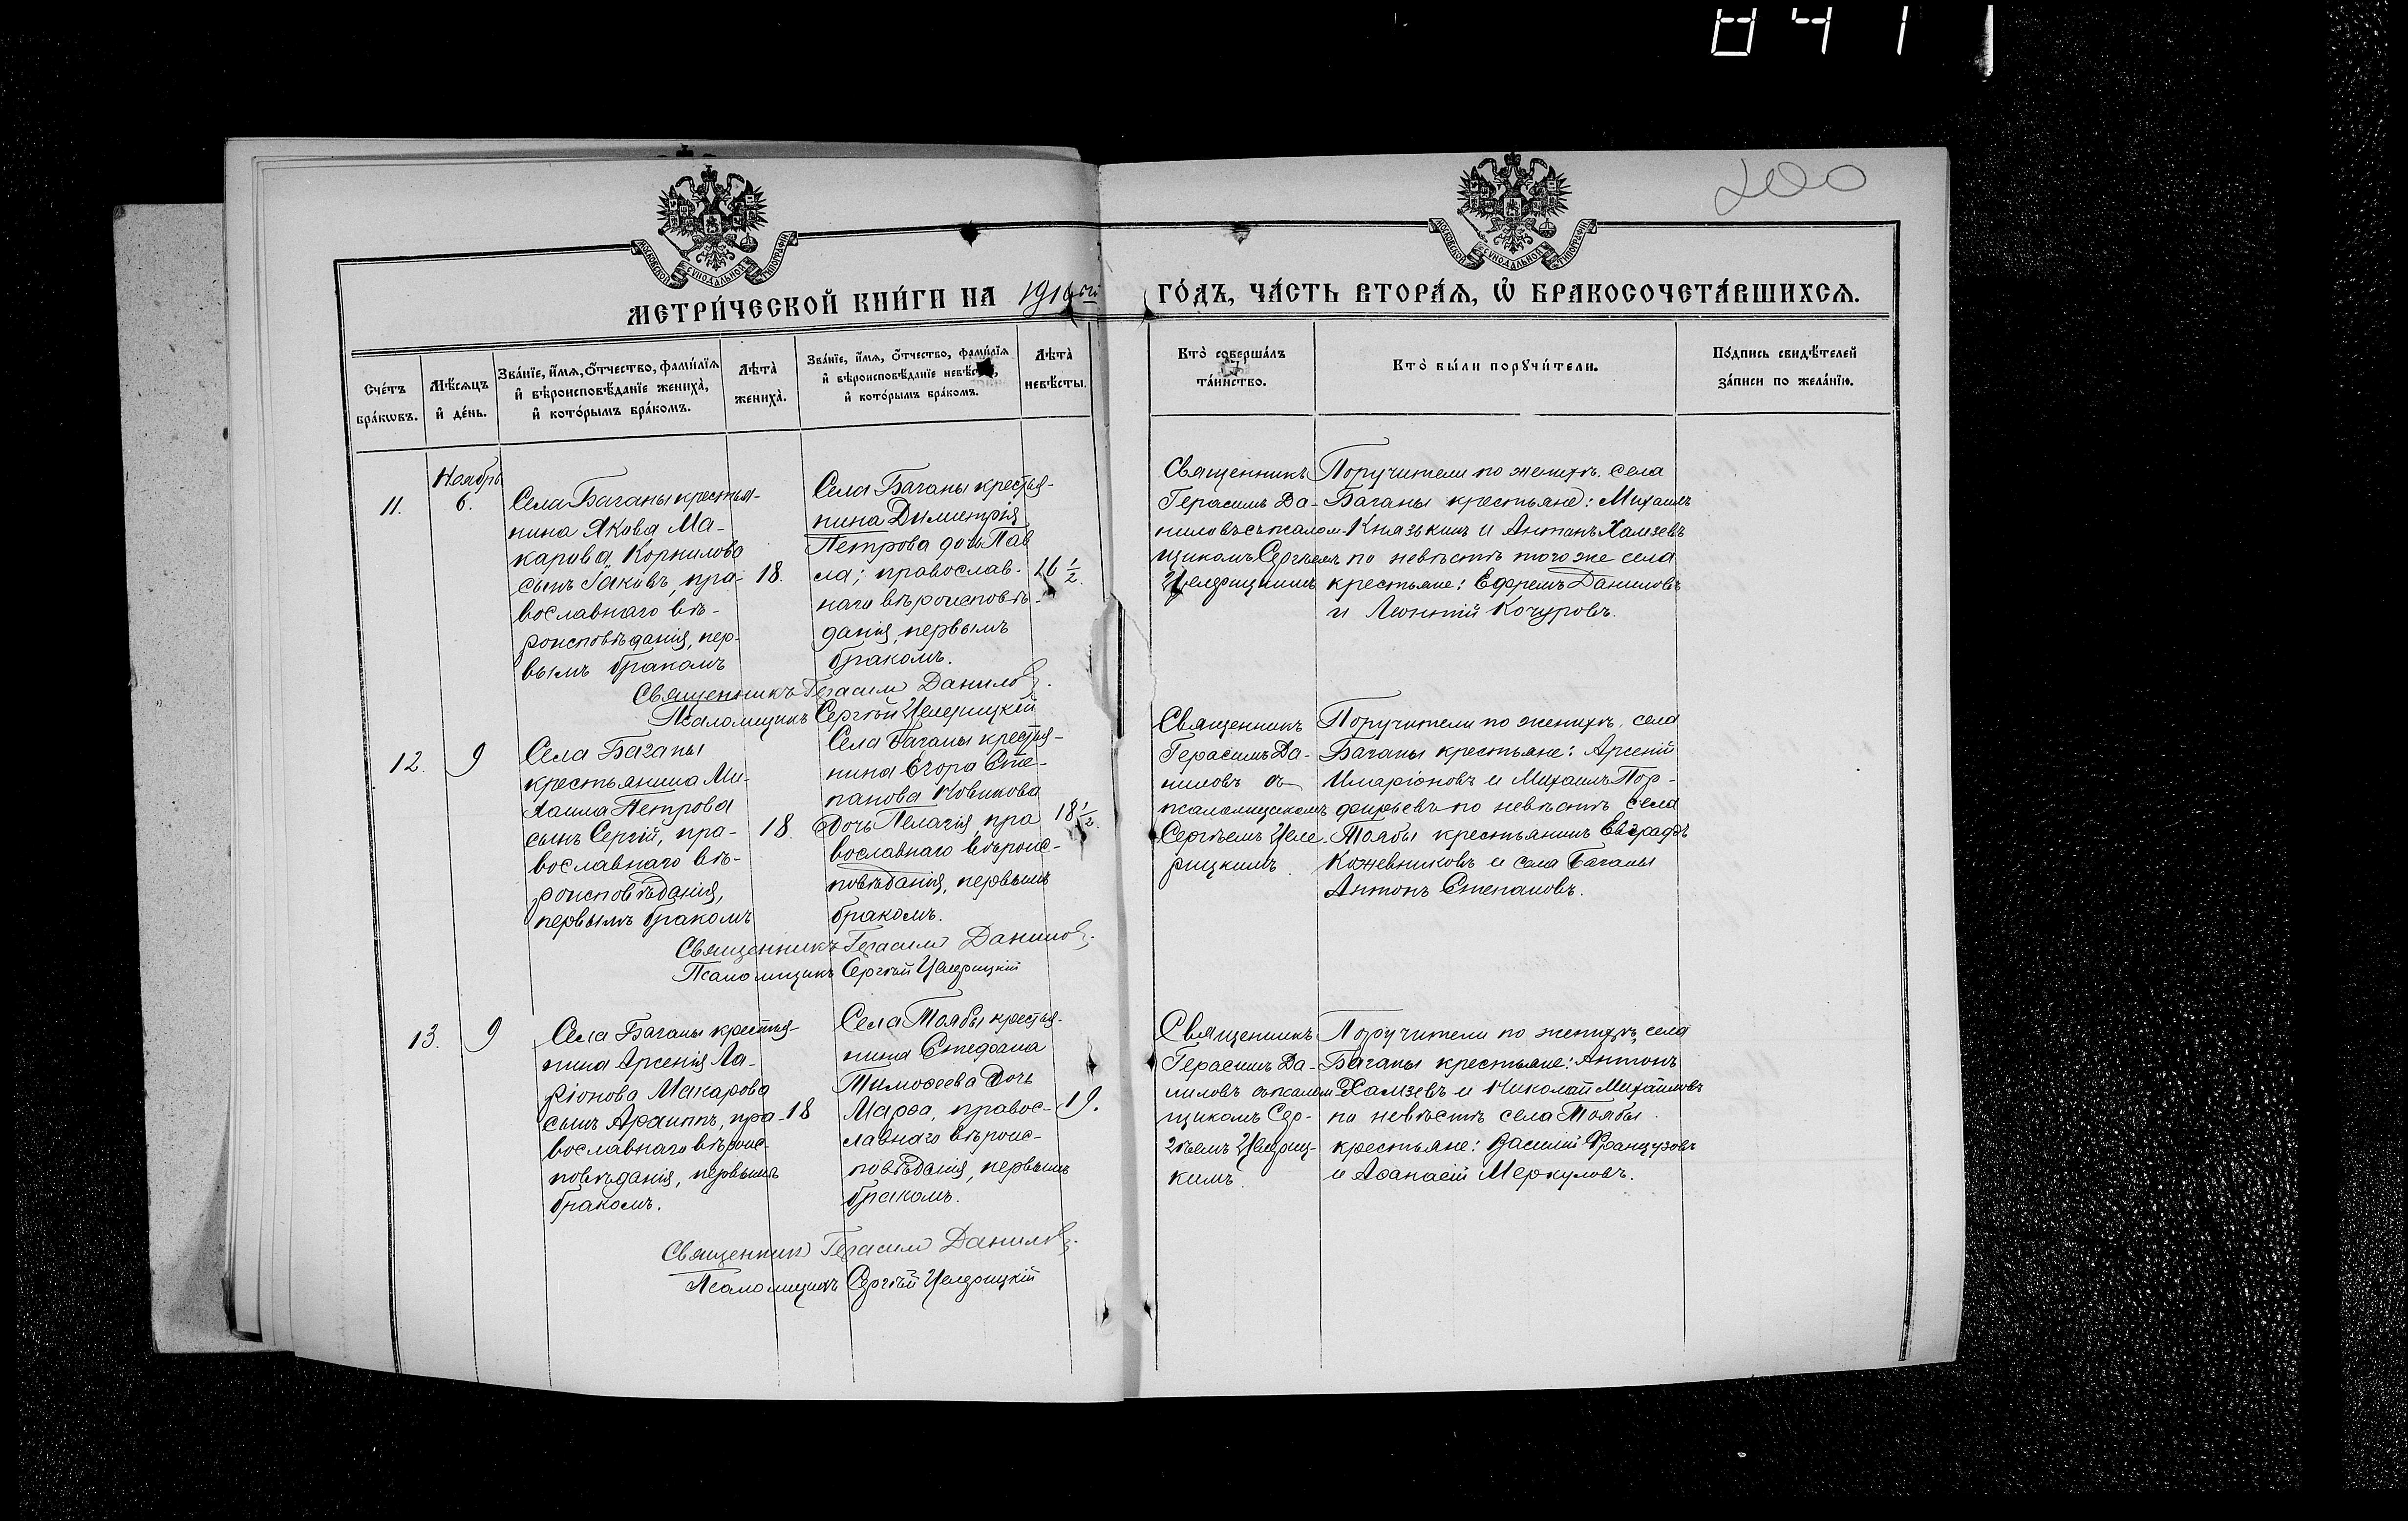 8411
200
МОСКОВСКОЙ СУНОДАЛЬНОЙ ТИПОГРАФІИ
МОСКОВСКОЙ СУНОДАЛЬНОЙ ТИПОГРАФІИ
МЕТРИ́ЧЕСКОЙ КНИ́ГИ НА ГО́ДЪ, ЧА́СТЬ ВТОРА́Ѧ, Ѡ҆ БРАКОСОЧЕТА́ВШИХСѦ.
Сче́тъ бра́кѡвъ.
Мѣ́сѧцъ и҆ де́нь.
Зва́нїе, и҆́мѧ, ѻ҆́тчество, фамилїѧ
и҆ вѣроисповѣ́данїе жениха̀,
и҆ кото́рымъ бра́комъ.
Лѣта̀
жениха̀.
Зва́нїе, и҆́мѧ, ѻ҆́тчество, фамилїѧ
и҆ вѣроисповѣ́данїе невѣ́сты,
и҆ кото́рымъ бра́комъ.
Лѣта̀
невѣ́сты.
Кто̀ соверша́лъ
та́инство.
Кто̀ бы́ли порꙋчи́тели.
По́дпись свидѣ́телей
за́писи по жела́нїю.
11.
Ноябрь
6.
Села Баганы крестья-
нина Якова Ма-
карова Корнилова
сынъ Іаковъ, пра-
вославнаго вѣ-
роисповѣданія, пер-
вымъ бракомъ
18.
Села Баганы крестья-
нина Димитрія
Петрова дочь Пав
ла; православ-
наго вѣроисповѣ-
данія, первымъ
бракомъ.
1/2.
Священникъ
Герасимъ Да-
ниловъ съ псалом-
щикомъ Сергѣемъ
Поручители по женихѣ села
Баганы крестьяне: Михаилъ
Князькинъ и Антонъ Хамзевъ
по невѣстѣ того же села
крестьяне: Ефремъ Даниловъ
и Леонтій Кочуровъ.
Священникъ Герасимъ Даниловъ.
Псаломщикъ Сергѣй
12.
9
Села Баганы
крестьянина Ми-
хаила Петрова
сынъ Сергій, пра-
вославнаго вѣ-
роисповѣданія,
первымъ бракомъ
18.
Села Баганы крестья-
нина Егора Сте-
панова Новикова
дочь Пелагія, пра
вославнаго вѣроис-
повѣданія, первымъ
бракомъ.
18 1/2.
Священникъ
Герасимъ Да-
ниловъ съ
псаломщикомъ
Сергѣемъ
Поручители по женихѣ, села
Баганы крестьяне: Арсеній
Иларіоновъ и Михаилъ Пор-
фирьевъ по невѣстѣ села
Тоябы крестьянинъ Евграфъ
Кожевниковъ и села Баганы
Антонъ Степановъ.
Священникъ Герасимъ Даниловъ.
Псаломщикъ Сергѣй
13.
9
Села Баганы крестья-
нина Арсенія Ла-
ріонова Макарова
сынъ Архиппъ, пра-
вославнаго вѣроис-
повѣданія, первымъ
бракомъ.
18
Села Тоябы крестья-
нина Стефана
Тимоѳеева дочь
Марѳа, правос-
лавнаго вѣроис-
повѣданія, первымъ
бракомъ.
19.
Священникъ
Герасимъ Да-
ниловъ съ псалом
щикомъ Сер-
гѣемъ
кимъ.
Поручители по женихѣ, села
Баганы крестьяне: Антонъ
Хамзевъ и Николай Михайловъ
по невѣстѣ села Тоябы
крестьяне: Василій Французовъ
и Аѳанасій Меркуловъ.
Священникъ Герасимъ Даниловъ.
Псаломщикъ Сергѣй